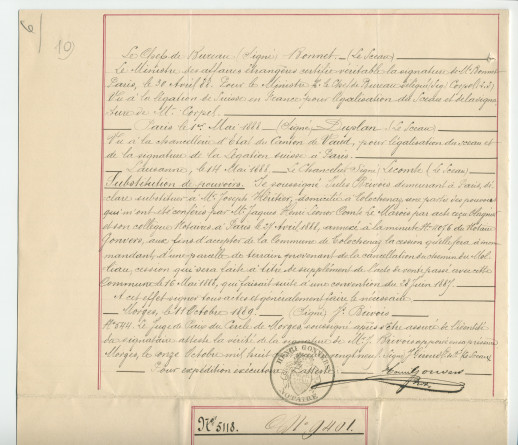 6/
19
Le Chef de Bureau (Signé) Bonnet (Le Sceau)
Le Ministre des affaires étrangères certifie véritable la signature de Mr Bonnet
Paris, le 30 Avril 88. Pour le Ministre P. le Chef de Bureau délégué (Sig) Corpel (L.S)
Vu à la Légation de Suisse en France pour légalisation du Sceau et de la signa
ture de Mr Corpel.
Paris le 1er Mai 1888 (Signé) Duplan (Le Sceau)
Vu à la Chancellerie d'Etat du Canton de Vaud, pour légalisation du sceau et
de la signature de la Légation suisse à Paris.
Lausanne, le 14 Mai 1888, Le Chancelier (Signé) Lecomte (Le Sceau)
Substitution de pouvoirs. Je soussigné Jules Brevois demeurant à Paris, dé
clare substituer à Mr Joseph Héritier, domicilié à Tolochenaz, une partie des pouvoirs
qui m'ont été conférés par Mr Jaques Henri Comte Le Marois par acte reçu
et son collègue Notaires à Paris le 27 Avril 1888, annexé à la minute No 2076 du Notaire
Gonvers, aux fins d'accepter de la Commune de Tolochenaz la cession qu'elle fera à mon
mandant, d'une parcelle de terrain provenant de la cancellation du chemin du Mol
liau, cession qui sera faite à titre de supplément de l'acte de vente passé avec cette
Commune le 16 Mai 1888, qui faisait suite à une convention du 28 Juin 1887.
A cet effet signer tous actes et généralement faire le nécessaire.
Morges, le 11 Octobre 1889. (Signé) J. Brevois
No 544. Le Juge de Paix du Cercle de Morges soussigné après s'être assuré de l'identité
du signataire atteste la vérité de la signature de Mr J. Brevois apposée en sa présence
Morges, le onze Octobre mil huit cent (Signé) (Le Sceau)
Pour expédition exécutoire, l'atteste
HENRI GONVERS
NOTAIRE
Henri Gonvers
Not.
No 5118. No 9401.